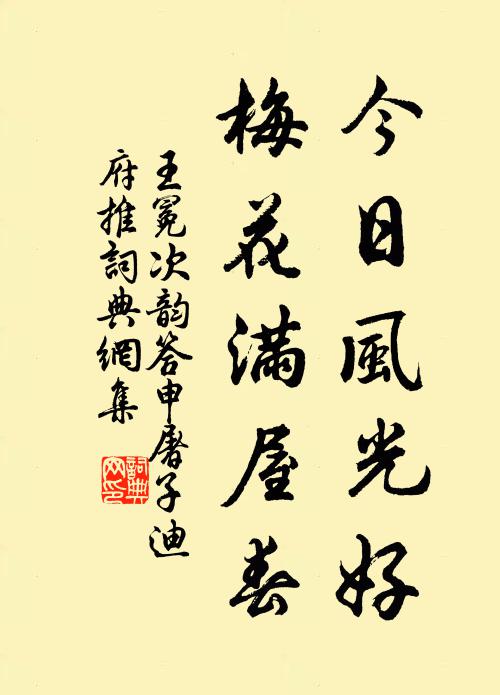 今日風光好
梅花滿屋春
王冕次韵答申屠子迪
府推詞典網集
詞典网印